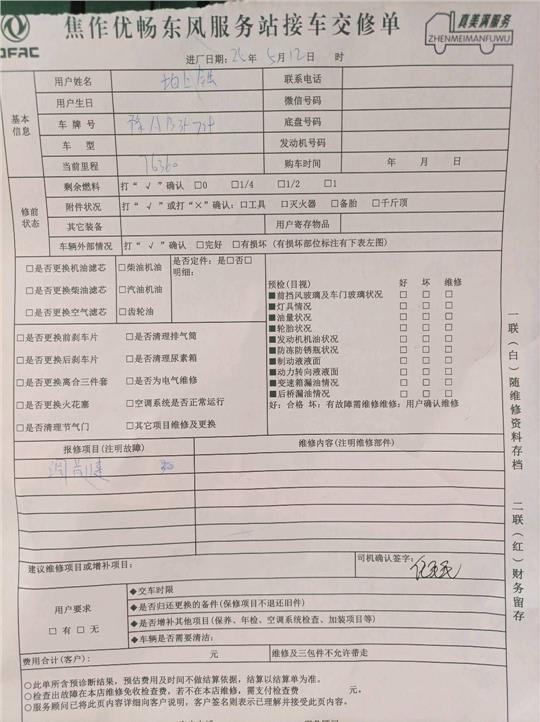 DFAC
焦作优畅东风服务站接车交修单
真美满服务
ZHENMEIMANFUWU
进厂日期：25年 5月12日 时
基本信息
用户姓名 联系电话
用户生日 微信号码
车牌号 底盘号码
车型 发动机号码
当前里程 16360 购车时间 年 月 日
修前状态
剩余燃料 打“√”确认 □0 □1/4 □1/2 □1
附件状况 打“√”或打“×”确认：□工具 □灭火器 □备胎 □千斤顶
其它装备 用户寄存物品
车辆外部情况 打“√”确认 □完好 □有损坏（有损坏部位标注有下表左图）
□是否更换机油滤芯 □柴油机油 是否定件：是□否□
明细：
□是否更换柴油滤芯 □汽油机油
□是否更换空气滤芯 □齿轮油
预检(目视) 好 坏 维修
■前挡风玻璃及车门玻璃状况 □ □ □
■灯具情况 □ □ □
■油量状况 □ □ □
■轮胎状况 □ □ □
■发动机机油状况 □ □ □
■防冻防锈瓶状况 □ □ □
■制动液液面 □ □ □
■动力转向液液面 □ □ □
■变速箱漏油情况 □ □ □
■后桥漏油情况 □ □ □
好：合格 坏：有故障需维修维修：用户确认维修
□是否更换前刹车片 □是否清理排气筒
□是否更换后刹车片 □是否清理尿素箱
□是否更换离合三件套 □是否为电气维修
□是否更换火花塞 □空调系统是否正常运行
□是否清理节气门 □其它项目维修及更换
报修项目(注明故障) 维修内容(注明维修部件)
建议维修项目或增补项目： 司机确认签字：
用户要求
□有 □无
◆交车时限
◆是否归还更换的备件(保修项目不退还旧件)
◆是否增补其他项目(保养、年检、空调系统检查、加装项目等)
◆车辆是否需要清洁：
费用合计(客户)： 元 维修及三包件不允许带走
○此单所含预诊断结果，预估费用及时间不做结算依据，结算以结算单为准。
○检查出故障在本店维修免收检查费，若不在本店维修，需支付检查费 元。
○服务顾问已将此页内容详细向客户说明，客户签名则表示已理解并接受此页内容。
一联（白）随维修资料存档
二联（红）财务留存